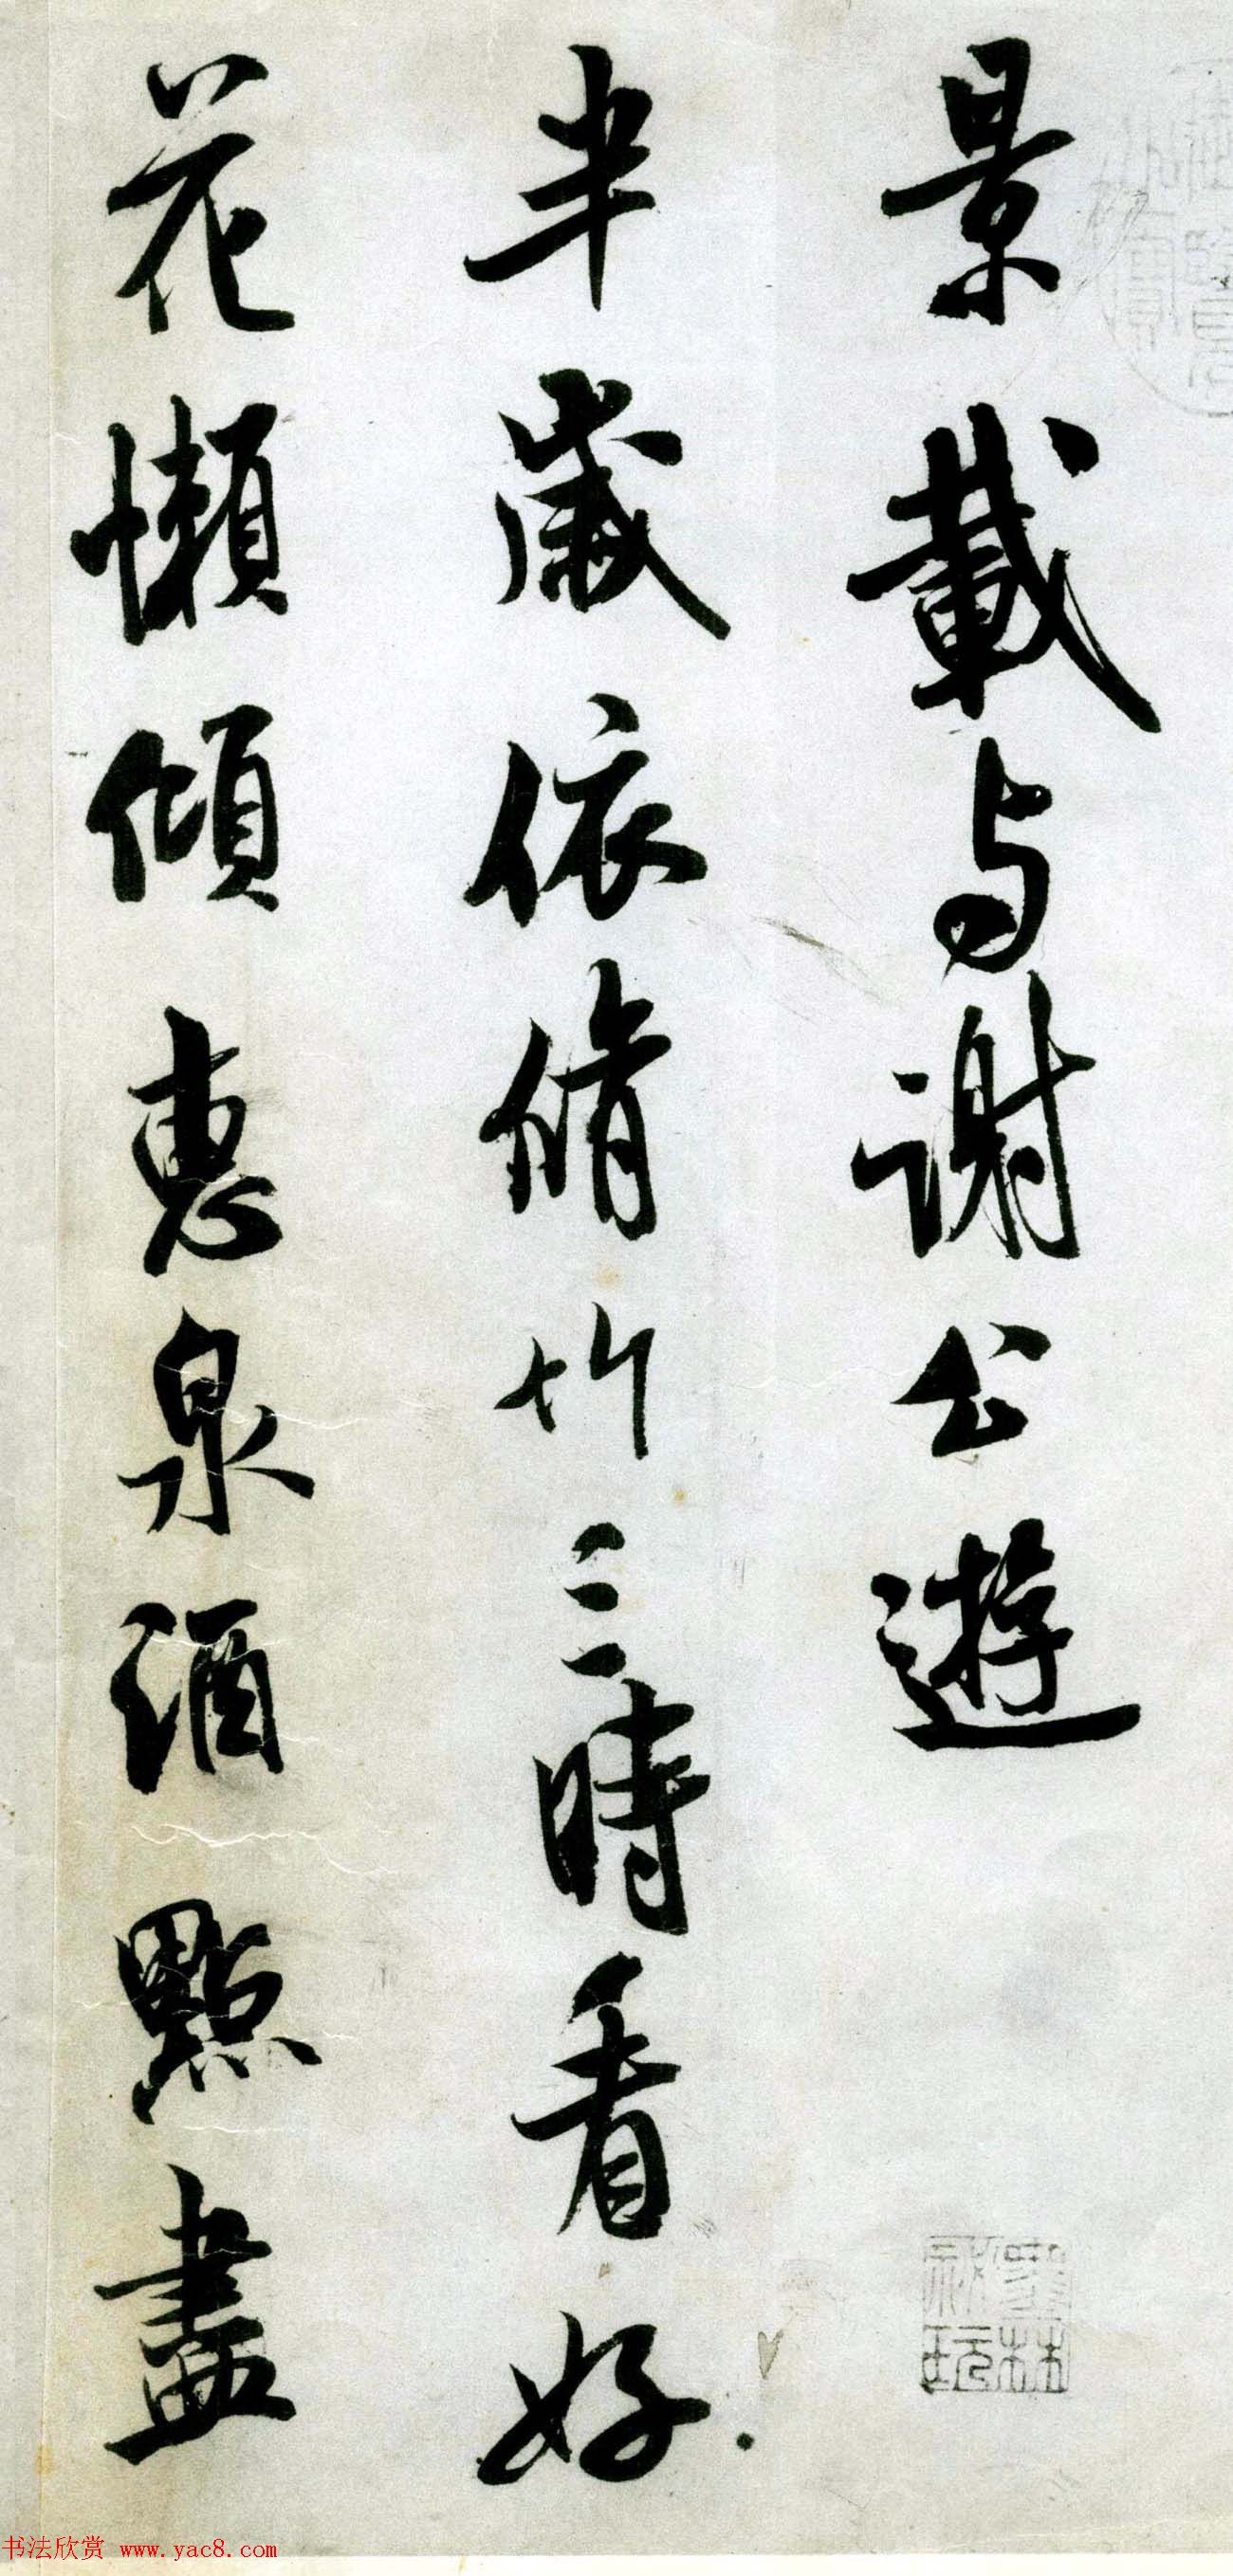 景載与謝公遊
半歲依脩竹三時看好
花懶傾惠泉酒點盡
书法欣赏 www.yac8.com